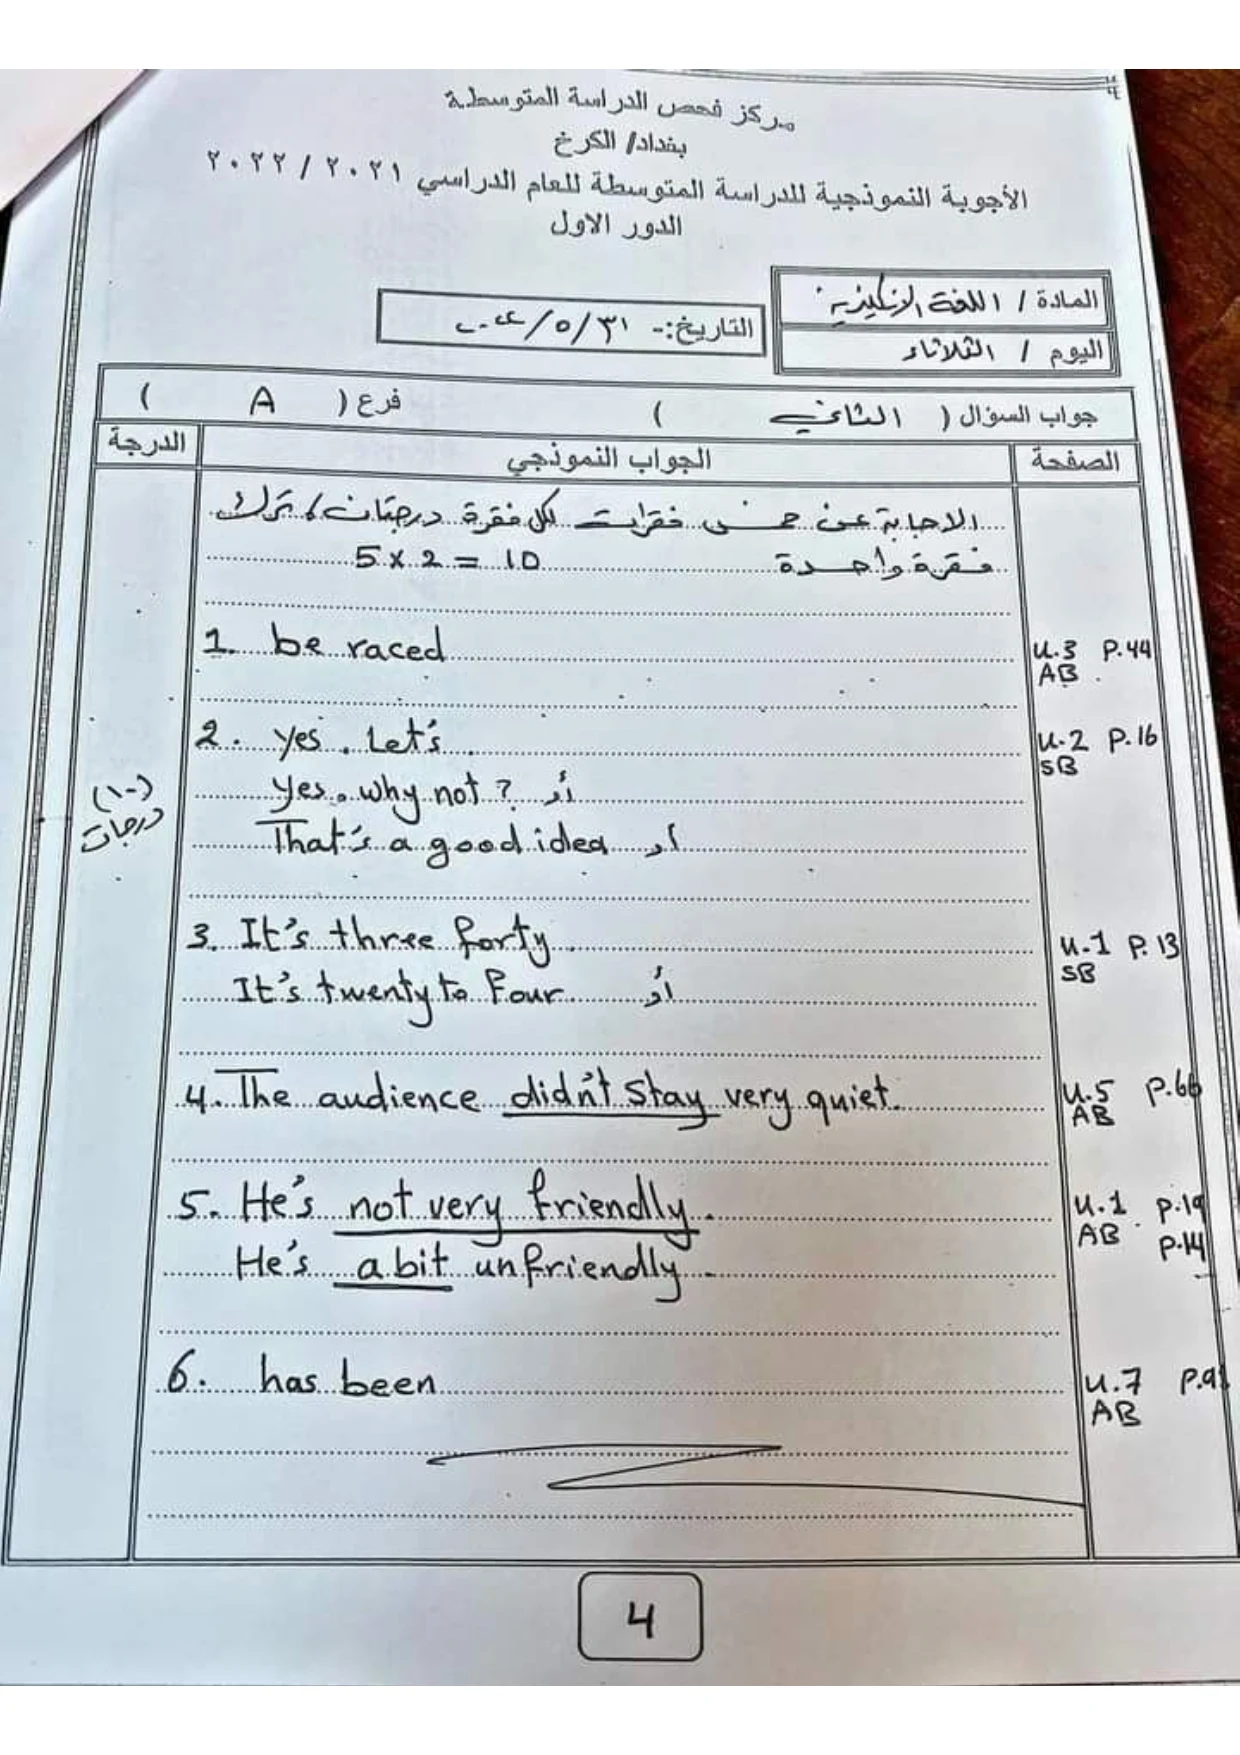 مركز فحص الدراسة المتوسطة
بغداد/ الكرخ
الأجوبة النموذجية للدراسة المتوسطة للعام الدراسي ٢٠٢١ / ٢٠٢٢
الدور الاول
المادة / اللغة الانكليزية
التاريخ:- ٣١ /٥/ ٢٠٢٢
اليوم / الثلاثاء
جواب السؤال ( الثاني ) فرع ( A )
الصفحة الجواب النموذجي الدرجة
الاجابة عن خمس فقرات لكل فقرة درجتان / ترك
فقرة واحدة 5 x 2 = 10
1. be raced U.3 P.44
AB
2. yes. Let's. U.2 P.16
SB
yes. why not? أو
That's a good idea أو
(١٠)
درجات
3. It's three forty. U.1 P.13
SB
It's twenty to four أو
4. The audience didn't stay very quiet. U.5 P.66
AB
5. He's not very friendly. U.1 P.19
AB P.14
He's a bit unfriendly.
6. has been U.7
AB
4